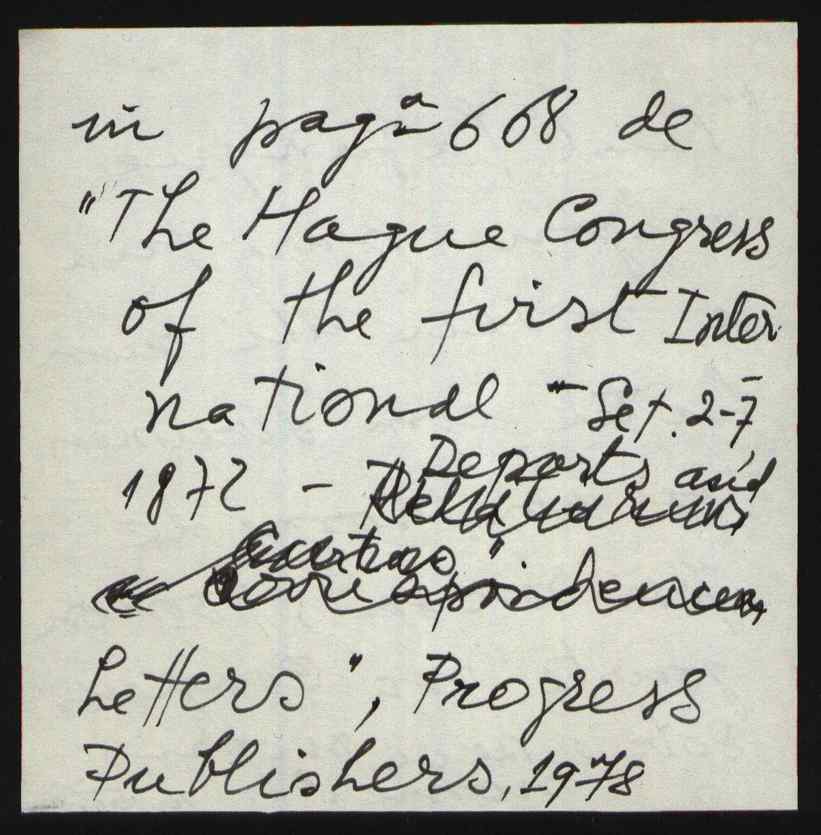 in pagª 668 de
"The Hague Congress
of the first Inter
national - Set. 2-7,
1872 - Reports and
Letters", Progress
Publishers, 1978